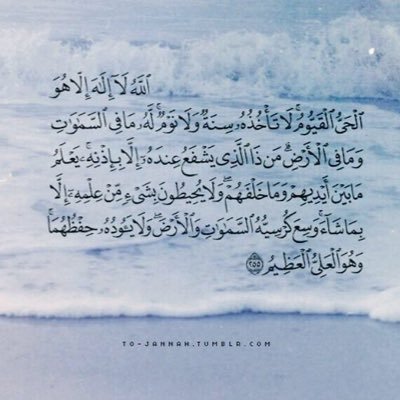 ٱللَّهُ لَآ إِلَٰهَ إِلَّا هُوَ
ٱلْحَىُّ ٱلْقَيُّومُ ۚ لَا تَأْخُذُهُۥ سِنَةٌ وَلَا نَوْمٌ ۚ لَّهُۥ مَا فِى ٱلسَّمَٰوَٰتِ
وَمَا فِى ٱلْأَرْضِ ۗ مَن ذَا ٱلَّذِى يَشْفَعُ عِندَهُۥٓ إِلَّا بِإِذْنِهِۦ ۚ يَعْلَمُ
مَا بَيْنَ أَيْدِيهِمْ وَمَا خَلْفَهُمْ ۖ وَلَا يُحِيطُونَ بِشَىْءٍ مِّنْ عِلْمِهِۦٓ إِلَّا
بِمَا شَآءَ ۚ وَسِعَ كُرْسِيُّهُ ٱلسَّمَٰوَٰتِ وَٱلْأَرْضَ ۖ وَلَا يَـُٔودُهُۥ حِفْظُهُمَا ۚ
وَهُوَ ٱلْعَلِىُّ ٱلْعَظِيمُ ۝٢٥٥
TO-JANNAH.TUMBLR.COM